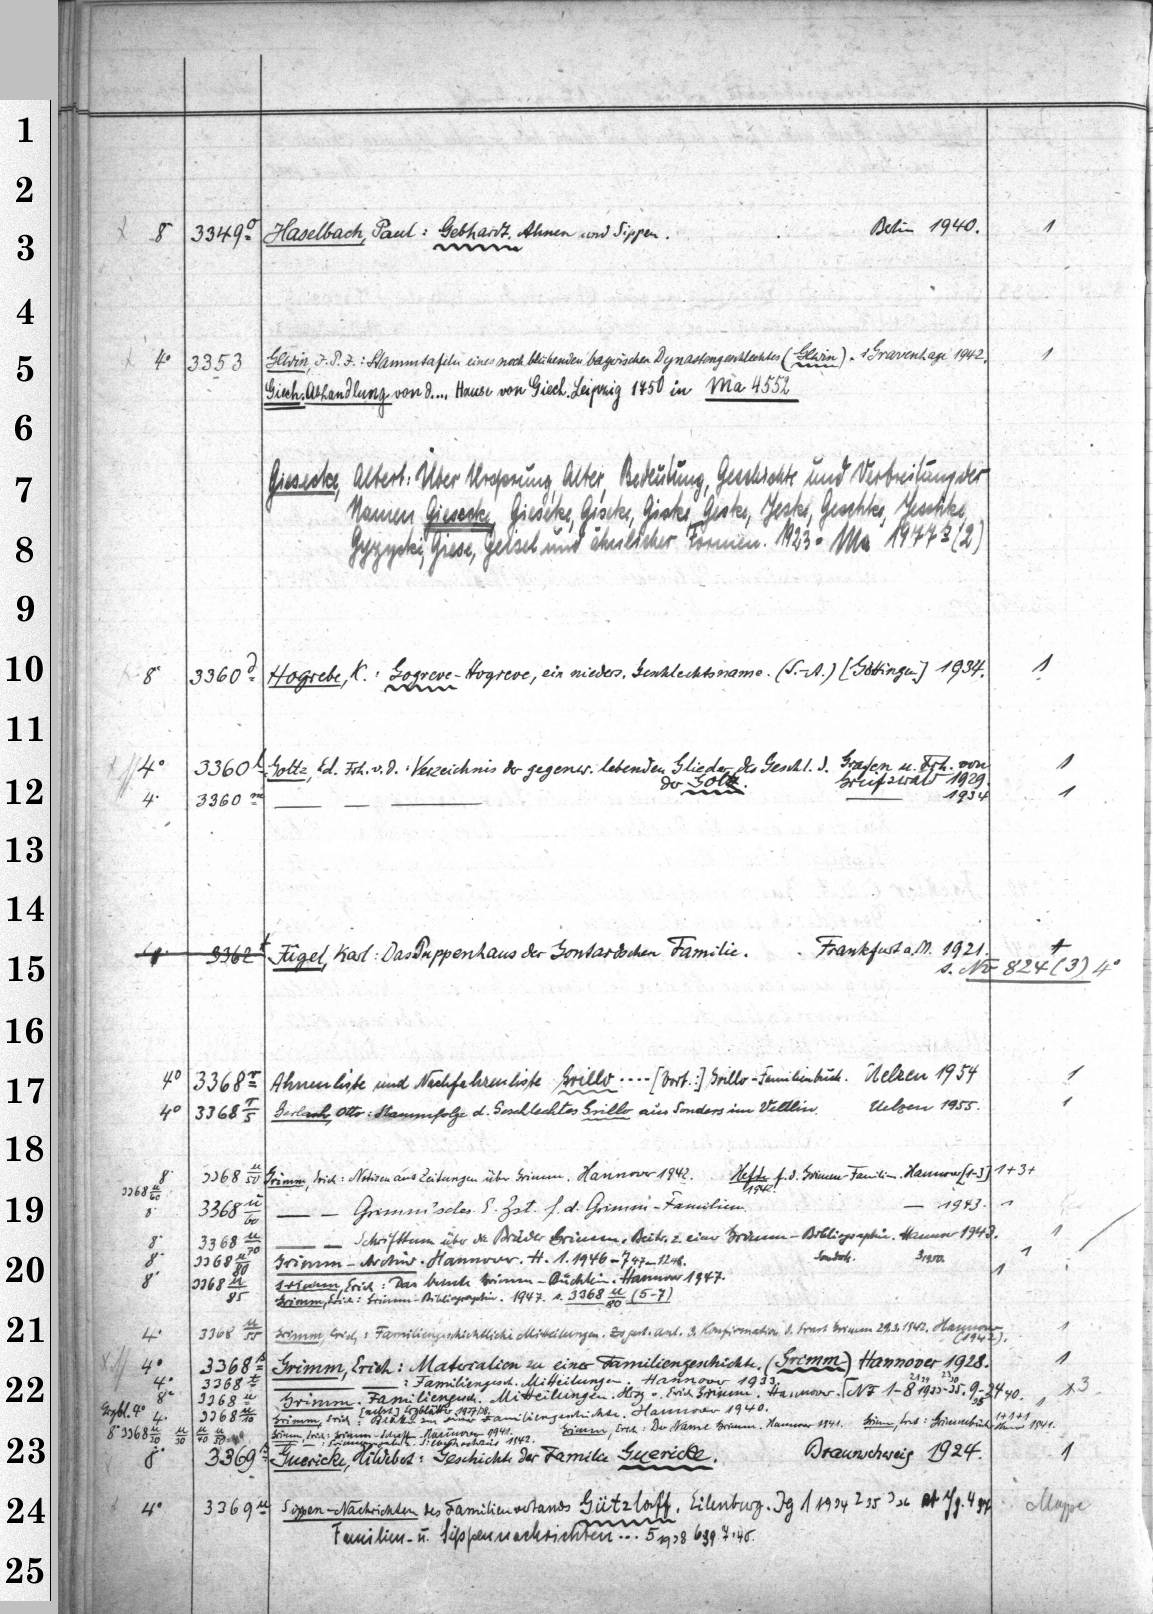 1
2
3
8° 3349 o Haselbach, Paul: Gebhardt. Ahnen und Sippen. Berlin 1940. 1
4
5
4° 3353 J.P.J.: Stammtafeln eines noch blühenden bayrischen Dynastengeschlechtes 's Gravenhage 1942. 1
Giech. Abhandlung von d.... Hause von Giech. Leipzig 1750 in Ma 4552
6
7
Giesecke, Albert: Über Ursprung, Alter, Bedeutung, Geschichte und Verbreitung der
Namen Giesecke, Gieseke, Giseke, Giske, Geske, Jeske, Geschke, Jeschke,
8
Gyzycki, Giese, Geisel und ähnlicher Formen. 1923. Ma 1977 (2)
9
10
8° 3360 d Hogrebe, K.: Gogreve-Hogreve, ein nieders. Geschlechtsname. (S.-A.) [Göttingen] 1934. 1
11
4° 3360 l Goltz, Ed. Frh. v. d.: Verzeichnis der gegenw. lebenden Glieder des Geschl. d. Grafen u. Frh. von
der Goltz. Greifswald 1929. 1
12
4° 3360 m — — — 1934 1
13
14
4° 3362 t Fügel, Karl: Das Puppenhaus der Gontardschen Familie. Frankfurt a. M. 1921. †
15
s. No 824 (3) 4°
16
17
4° 3368 r Ahnenliste und Nachfahrenliste Grillo .... [Vort.:] Grillo-Familienbuch. Uelzen 1954 1
4° 3368 r/5 Gerlach, Otto: Stammfolge d. Geschlechtes Grillo aus Sonders im Veltlin. Uelzen 1955. 1
18
8° 3368 u/50 Grimm, Erich: Notizen aus Zeitungen über Grimm. Hannover 1942. Hefte f. d. Grimm-Familien. Hannover [1-3] 1+3+
3368 u/60 1942
19
8° 3368 u/60 — — Grimm'sches f. d. Grimm-Familien. — 1943. 1
8° 3368 u/70 — — Schrifttum über die Brüder Grimm. Beitr. z. einer Grimm-Bibliographie. Hannover 1943. 1
20
8° 3368 u/80 Grimm-Archiv. Hannover. H. 1. 1946-7 47- 1
8° 3368 u/85 Grimm, Erich: Das Grimm-Büchlein. Hannover 1947. 1
Grimm, Erich: Grimm-Bibliographie. 1947. s. 3368 u/80 (5-7)
21
4° 3368 u/55 Grimm, Erich: Familiengeschichtliche Mitteilungen. 3. Konfirmation d. Grimm 29.3.1942. Hannover (1942). 1
4° 3368 s Grimm, Erich: Materialien zu einer Familiengeschichte. (Grimm) Hannover 1928. 1
22
4° 3368 t — — : Familiengesch. Mitteilungen. Hannover 1933.
8° 3368 u Grimm. Familiengesch. Mitteilungen. Hrg. v. Erich Grimm. Hannover. 3
4° 3368 u/10 Grimm, Erich: einer Familiengeschichte. Hannover 1940.
8° 3368 u/20 u/30 u/40 Grimm, Erich: Hannover 1941. Grimm, Erich: Der Name Grimm. Hannover 1941. 1941.
23
8° 3369 Guericke, Hildebert: Geschichte der Familie Guericke. Braunschweig 1924. 1
24
4° 3369 u Sippen-Nachrichten des Familienverbands Gützlaff. Eilenburg. Jg 1 1934 2 35 3 36 Jg. 4 37 Mappe
Familien- u. Sippennachrichten ... 5 1938 6 39 7.40.
25